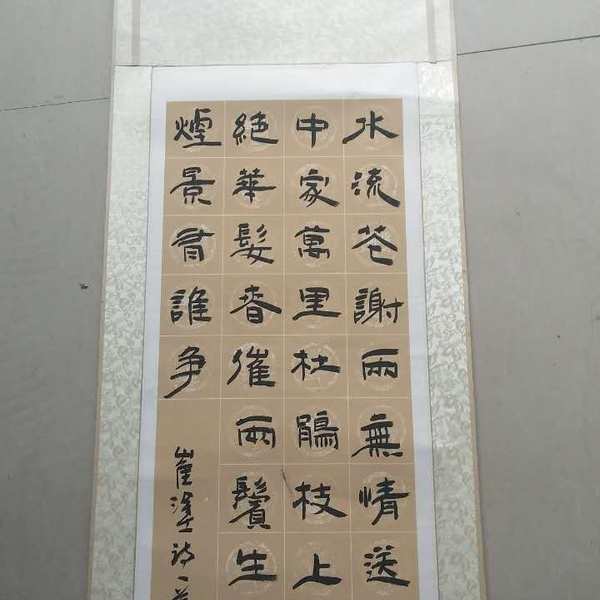 水流花謝兩無情送
中家萬里杜鵑枝上
絶華髮春催兩鬢生
煙景有誰爭
崔塗詩一